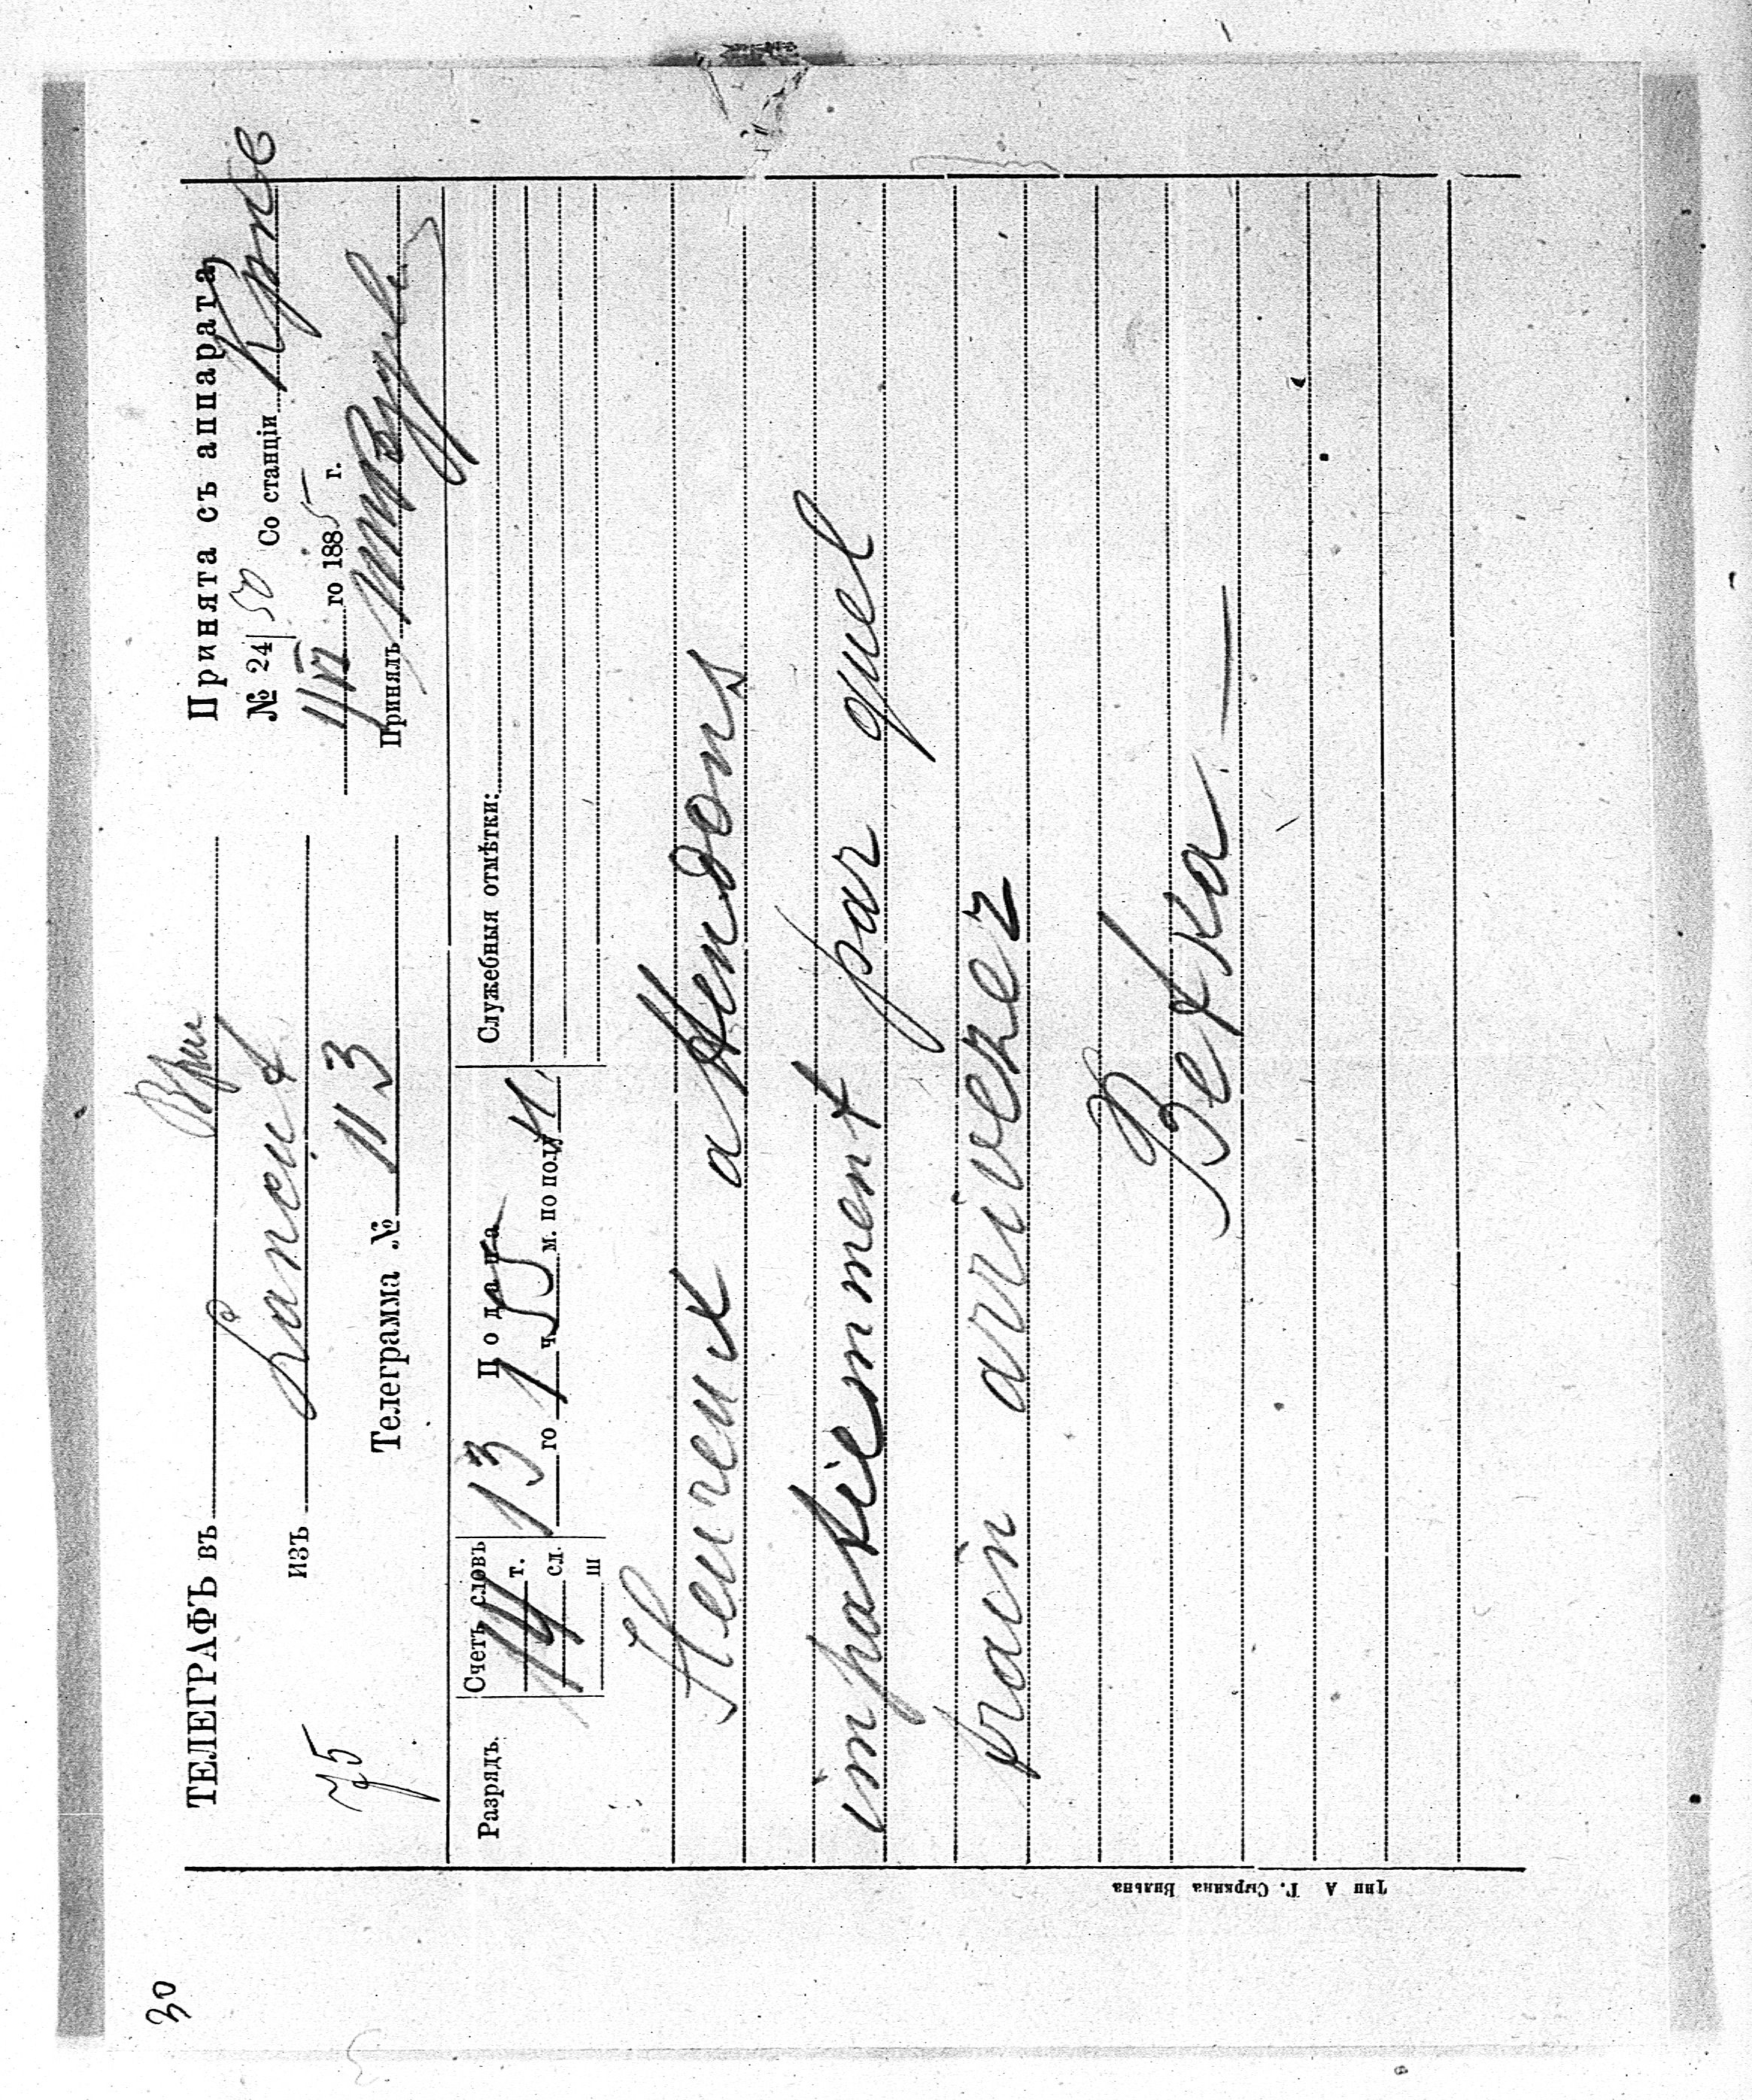 30
ТЕЛЕГРАФЪ въ
изъ
75
Телеграмма № 113
Принята съ аппарата
№ 24/50 Со станціи
го 1885 г.
Принялъ
Разрядъ.
Счетъ словъ
14
т.
сл.
ш
Подана
13 го 1 ч. 55 м. по полу
Служебныя отмѣтки:
Heureux attendons
impatiemment par quel
train arriverez
Betka —
Тип А Г. Сыркина Вильна